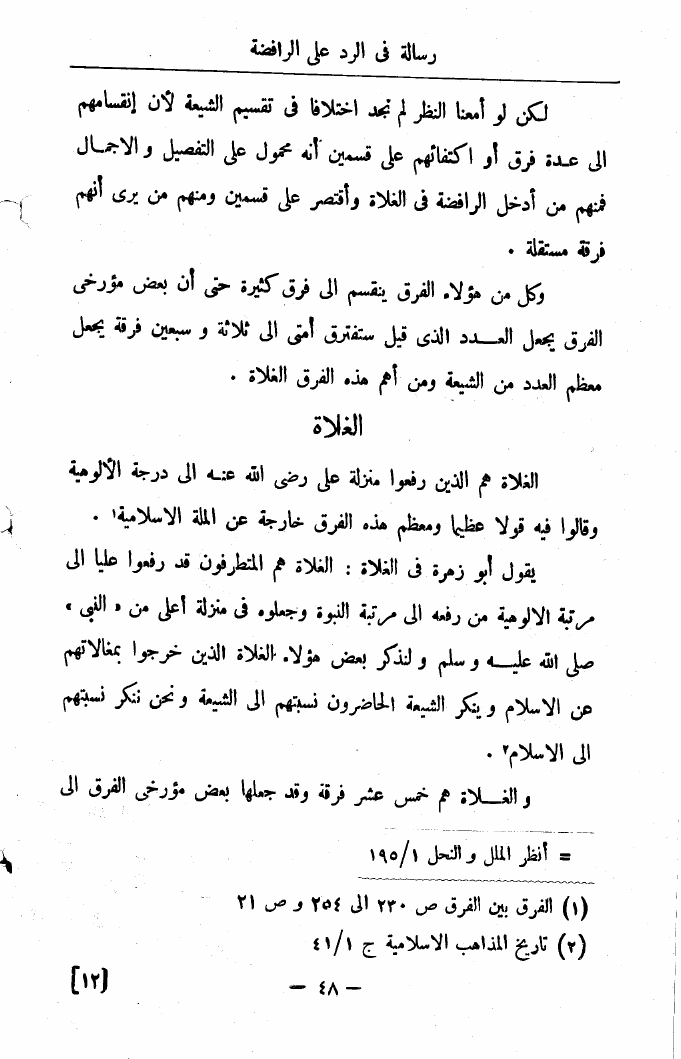 رسالة فى الرد على الرافضة
لكن لو أمعنا النظر لم نجد اختلافا فى تقسيم الشيعة لأن إنقسامهم
الى عدة فرق أو اكتفائهم على قسمين أنه محمول على التفصيل والاجمال
فمنهم من أدخل الرافضة فى الغلاة وأقتصر على قسمين ومنهم من يرى أنهم
فرقة مستقلة .
وكل من هؤلاء الفرق ينقسم الى فرق كثيرة حتى أن بعض مؤرخى
الفرق يجعل العدد الذى قيل ستفترق أمتى الى ثلاثة و سبعين فرقة يجعل
معظم العدد من الشيعة ومن أهم هذه الفرق الغلاة .
الغلاة
الغلاة هم الذين رفعوا منزلة على رضى الله عنه الى درجة الألوهية
وقالوا فيه قولا عظيما ومعظم هذه الفرق خارجة عن الملة الاسلامية١ .
يقول أبو زهرة فى الغلاة : الغلاة هم المتطرفون قد رفعوا عليا الى
مرتبة الالوهية من رفعه الى مرتبة النبوة وجعلوه فى منزلة أعلى من « النبى »
صلى الله عليه و سلم و لنذكر بعض هؤلاء الغلاة الذين خرجوا بمغالاتهم
عن الاسلام و ينكر الشيعة الحاضرون نسبتهم الى الشيعة و نحن ننكر نسبتهم
الى الاسلام٢ .
و الغلاة هم خمس عشر فرقة وقد جعلها بعض مؤرخى الفرق الى
= أنظر الملل و النحل ١٩٥/١
(١) الفرق بين الفرق ص ٢٣٠ الى ٢٥٤ و ص ٢١
(٢) تاريخ المذاهب الاسلامية ج ٤١/١
— ٤٨ —
[١٢]